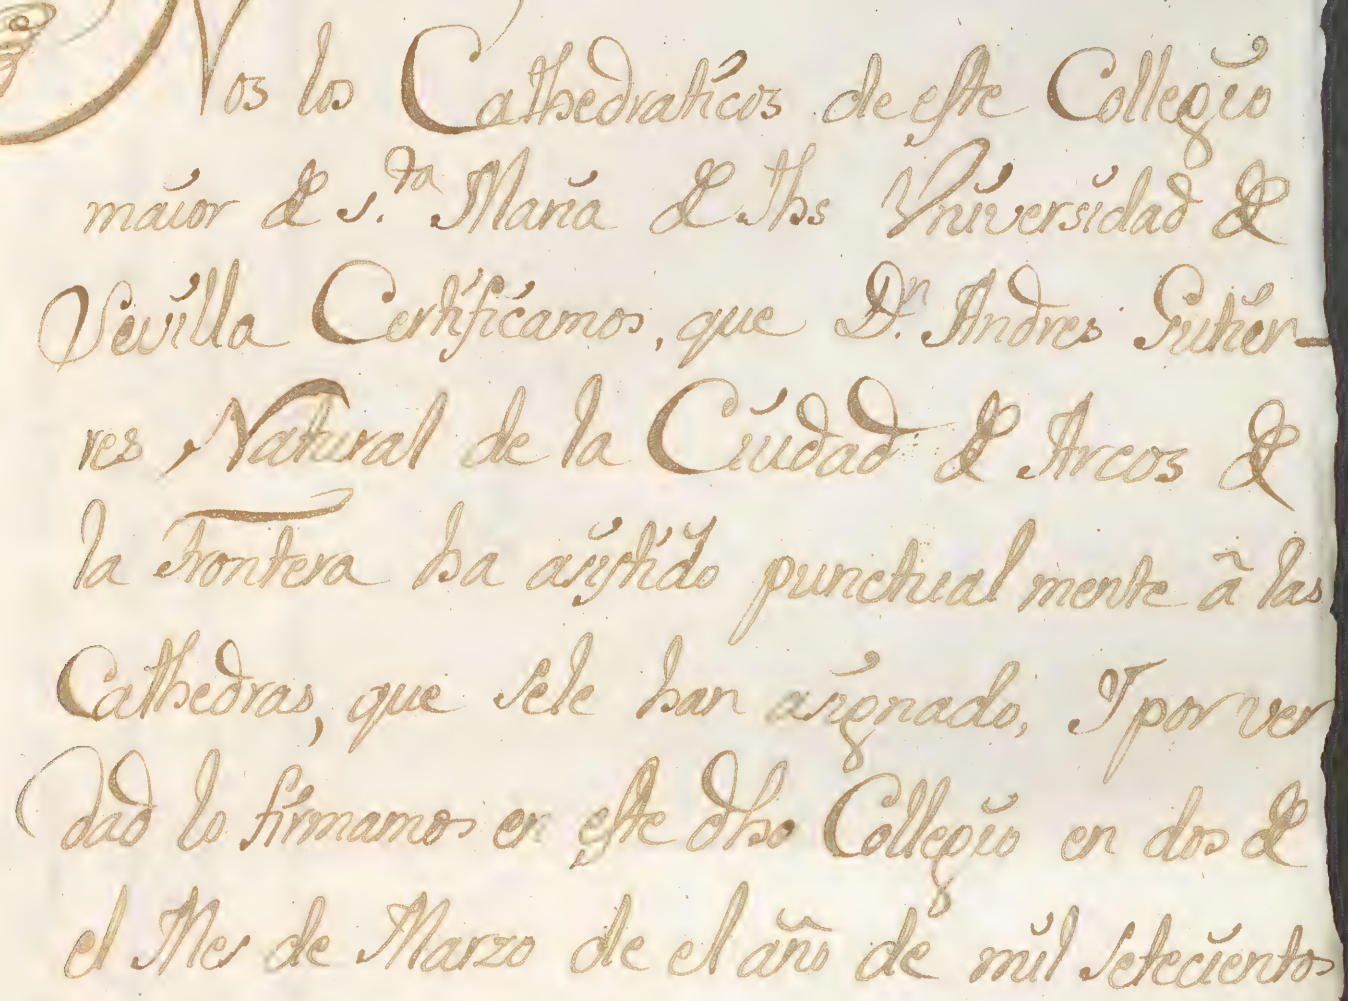 Nos los Cathedraticos de este Collegio
maior de S.ta Maria de Jhs Vniversidad de
Sevilla Certificamos, que D.n Andres Gutier-
res Natural de la Ciudad de Arcos de
la Frontera ha asistido punctualmente â las
Cathedras, que sele han asignado, Y por ver
dad lo firmamos en este dho Collegio en dos de
el Mes de Marzo de el año de mil setecientos